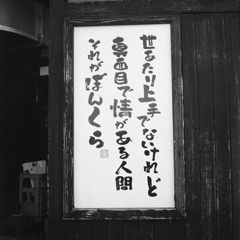 世あたり上手でないけれど
真面目で情がある人間
それがぼんくら